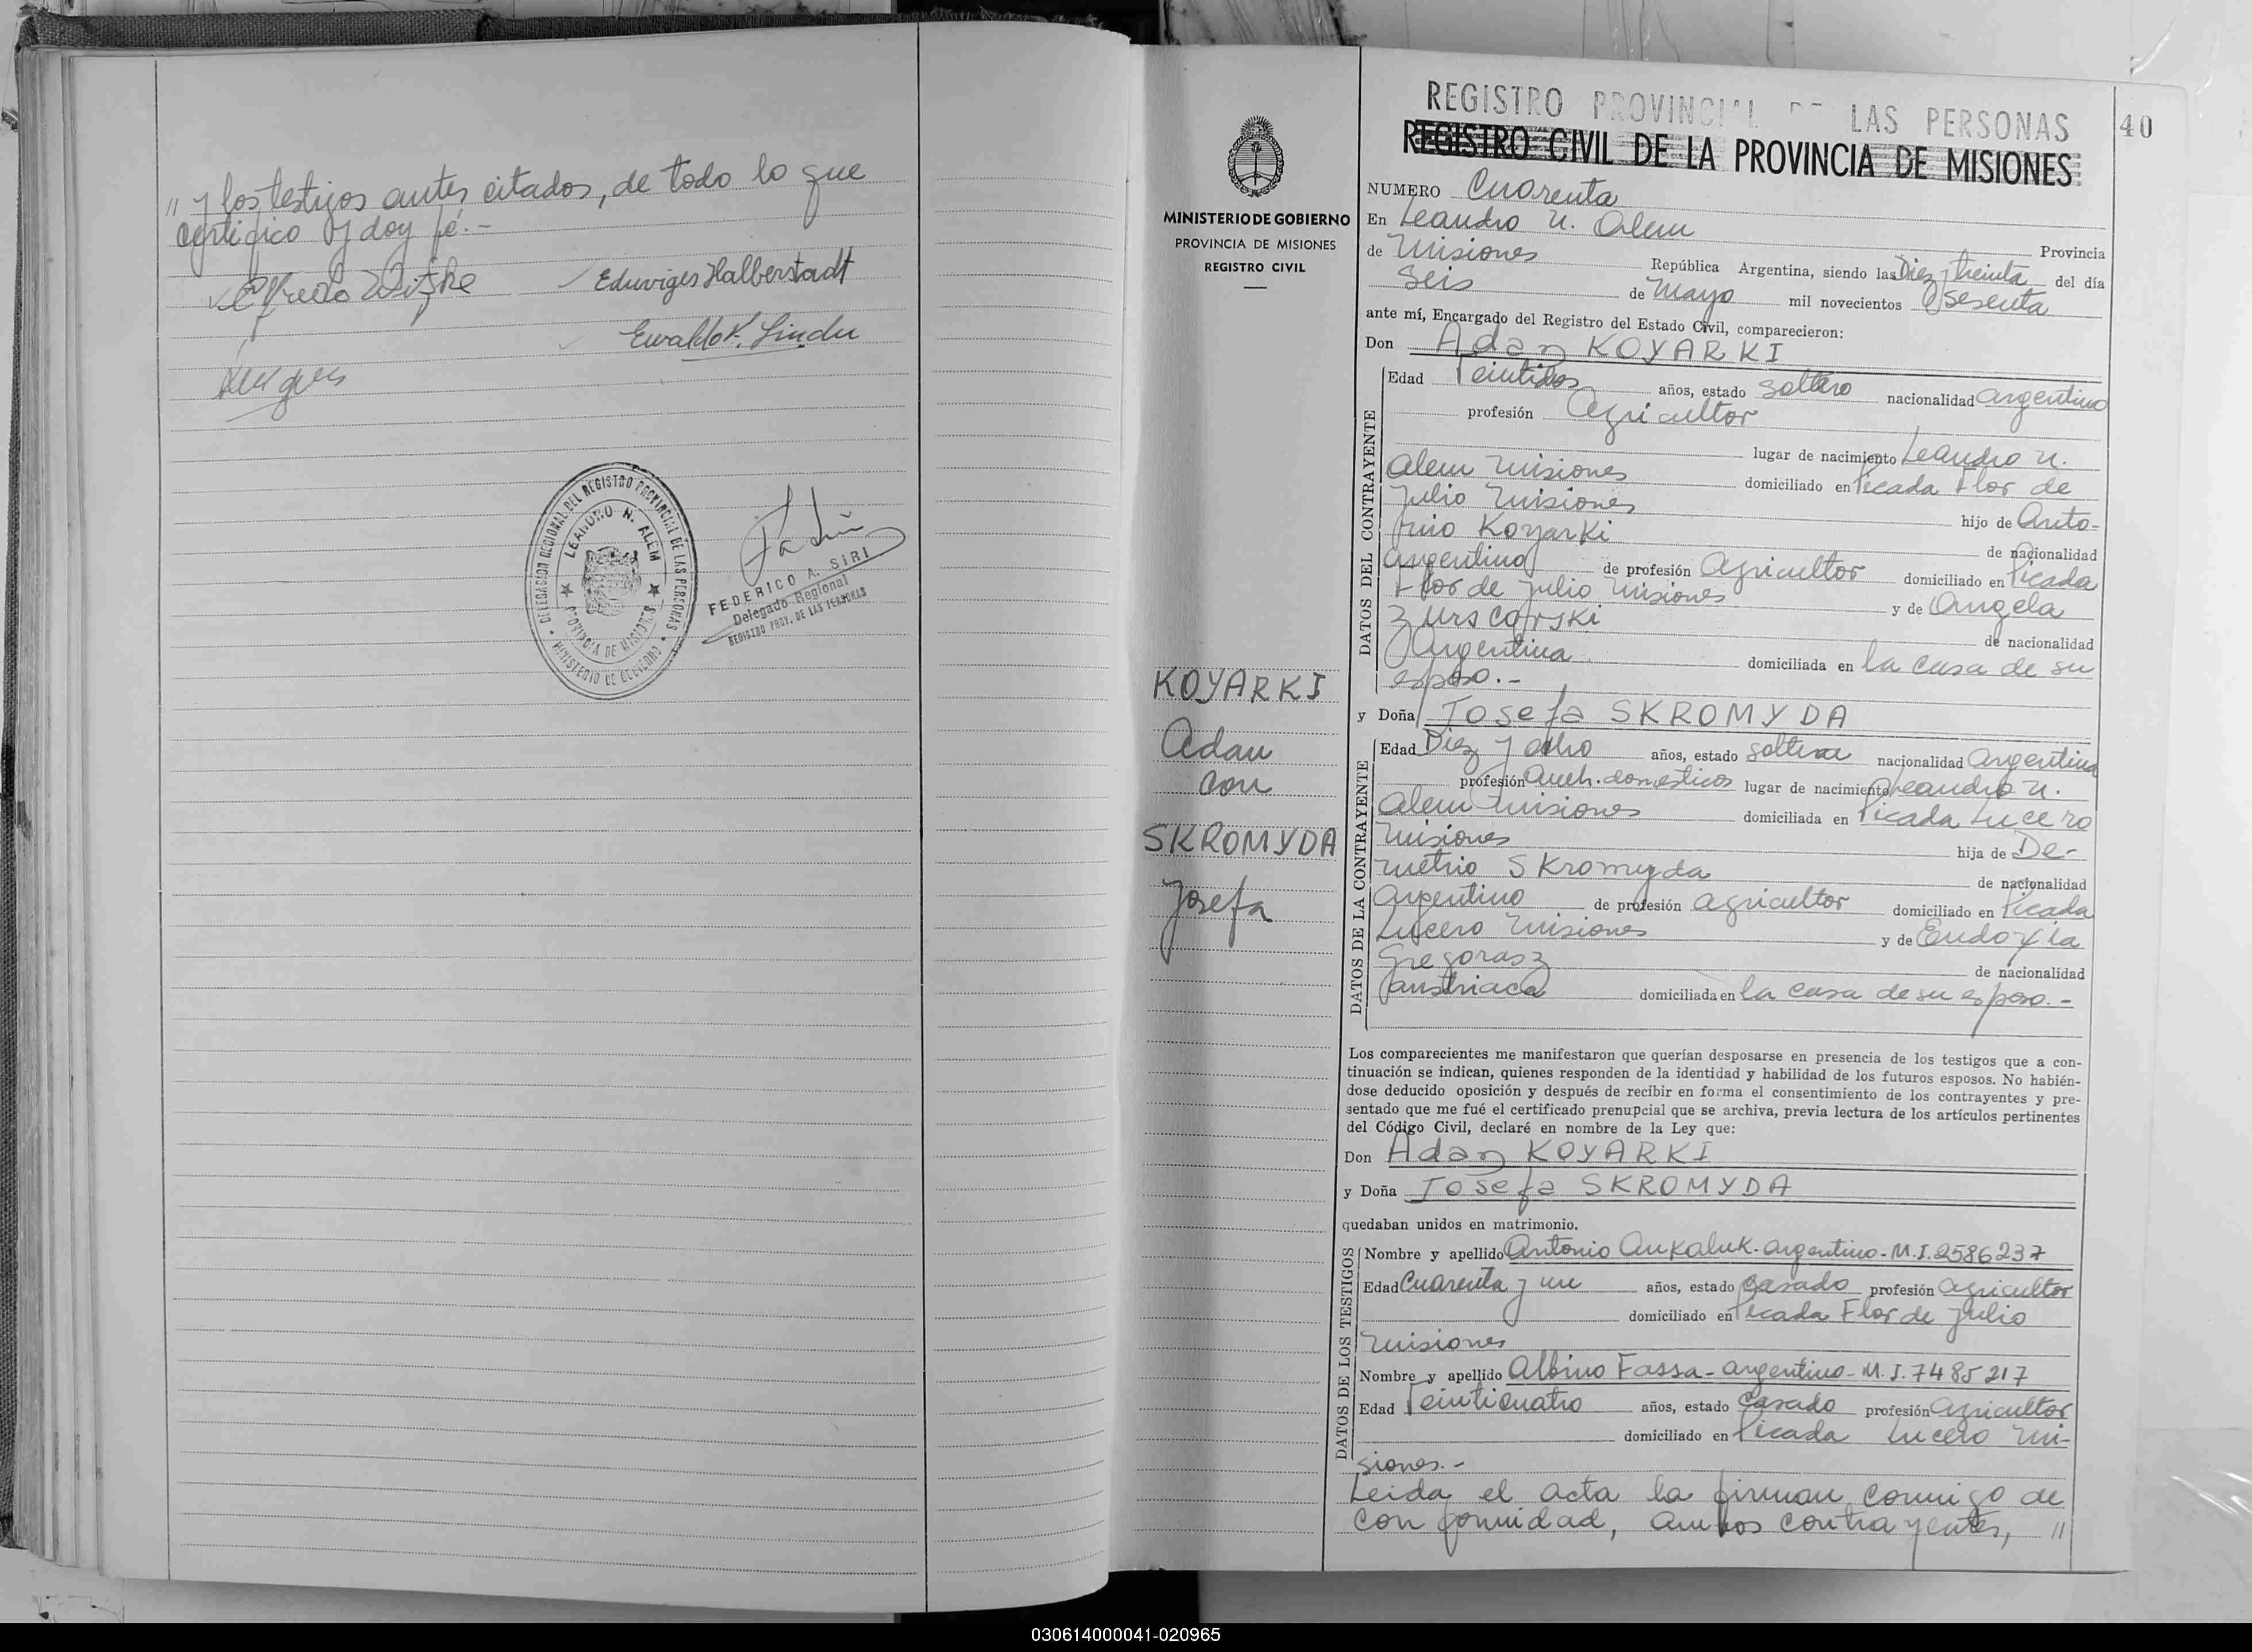 " y los testigos antes citados, de todo lo que
certifico y doy fé.-
Eduviges Halberstadt
Ewaldo
DELEGACION REGIONAL DEL REGISTRO PROVINCIAL DE LAS PERSONAS
LEANDRO N. ALEM
PROVINCIA DE MISIONES
MINISTERIO DE GOBIERNO
FEDERICO A. SIRI
Delegado Regional
REGISTRO PROV. DE LAS PERSONAS
MINISTERIO DE GOBIERNO
PROVINCIA DE MISIONES
REGISTRO CIVIL
KOYARKI
Adan
con
SKROMYDA
Josefa
REGISTRO PROVINCIAL DE LAS PERSONAS
40
REGISTRO CIVIL DE LA PROVINCIA DE MISIONES
NUMERO Cuarenta
En Leandro N. Alem
de Misiones Provincia
República Argentina, siendo las Diez y treinta del día
Seis de Mayo mil novecientos sesenta
ante mí, Encargado del Registro del Estado Civil, comparecieron:
Don Adan KOYARKI
DATOS DEL CONTRAYENTE
Edad Veintidos años, estado soltero nacionalidad argentino
profesión Agricultor
lugar de nacimiento Leandro N.
Alem Misiones domiciliado en Picada Flor de
Julio Misiones hijo de Anto-
nio Koyarki de nacionalidad
argentino de profesión Agricultor domiciliado en Picada
Flor de Julio Misiones y de Angela
Zurscorski de nacionalidad
Argentina domiciliada en la casa de su
esposo.-
y Doña Josefa SKROMYDA
DATOS DE LA CONTRAYENTE
Edad Diez y ocho años, estado soltera nacionalidad Argentina
profesión Queh. domesticos lugar de nacimiento Leandro N.
Alem Misiones domiciliada en Picada Lucero
Misiones hija de De-
metrio Skromyda de nacionalidad
Argentino de profesión agricultor domiciliado en Picada
Lucero Misiones y de Eudoxia
Gregorasz de nacionalidad
austriaca domiciliada en la casa de su esposo.-
Los comparecientes me manifestaron que querían desposarse en presencia de los testigos que a con-
tinuación se indican, quienes responden de la identidad y habilidad de los futuros esposos. No habién-
dose deducido oposición y después de recibir en forma el consentimiento de los contrayentes y pre-
sentado que me fué el certificado prenupcial que se archiva, previa lectura de los artículos pertinentes
del Código Civil, declaré en nombre de la Ley que:
Don Adan KOYARKI
y Doña Josefa SKROMYDA
quedaban unidos en matrimonio.
DATOS DE LOS TESTIGOS
Nombre y apellido Antonio Aukaluk. argentino - M.I. 2586237
Edad Cuarenta y un años, estado casado profesión agricultor
domiciliado en Picada Flor de Julio
Misiones
Nombre y apellido Albino Fassa - argentino - M.I. 7485217
Edad Veinticuatro años, estado casado profesión agricultor
domiciliado en Picada Lucero Mi-
siones.-
Leida el acta la firman conmigo de
conformidad, ambos contrayentes, "
030614000041-020965